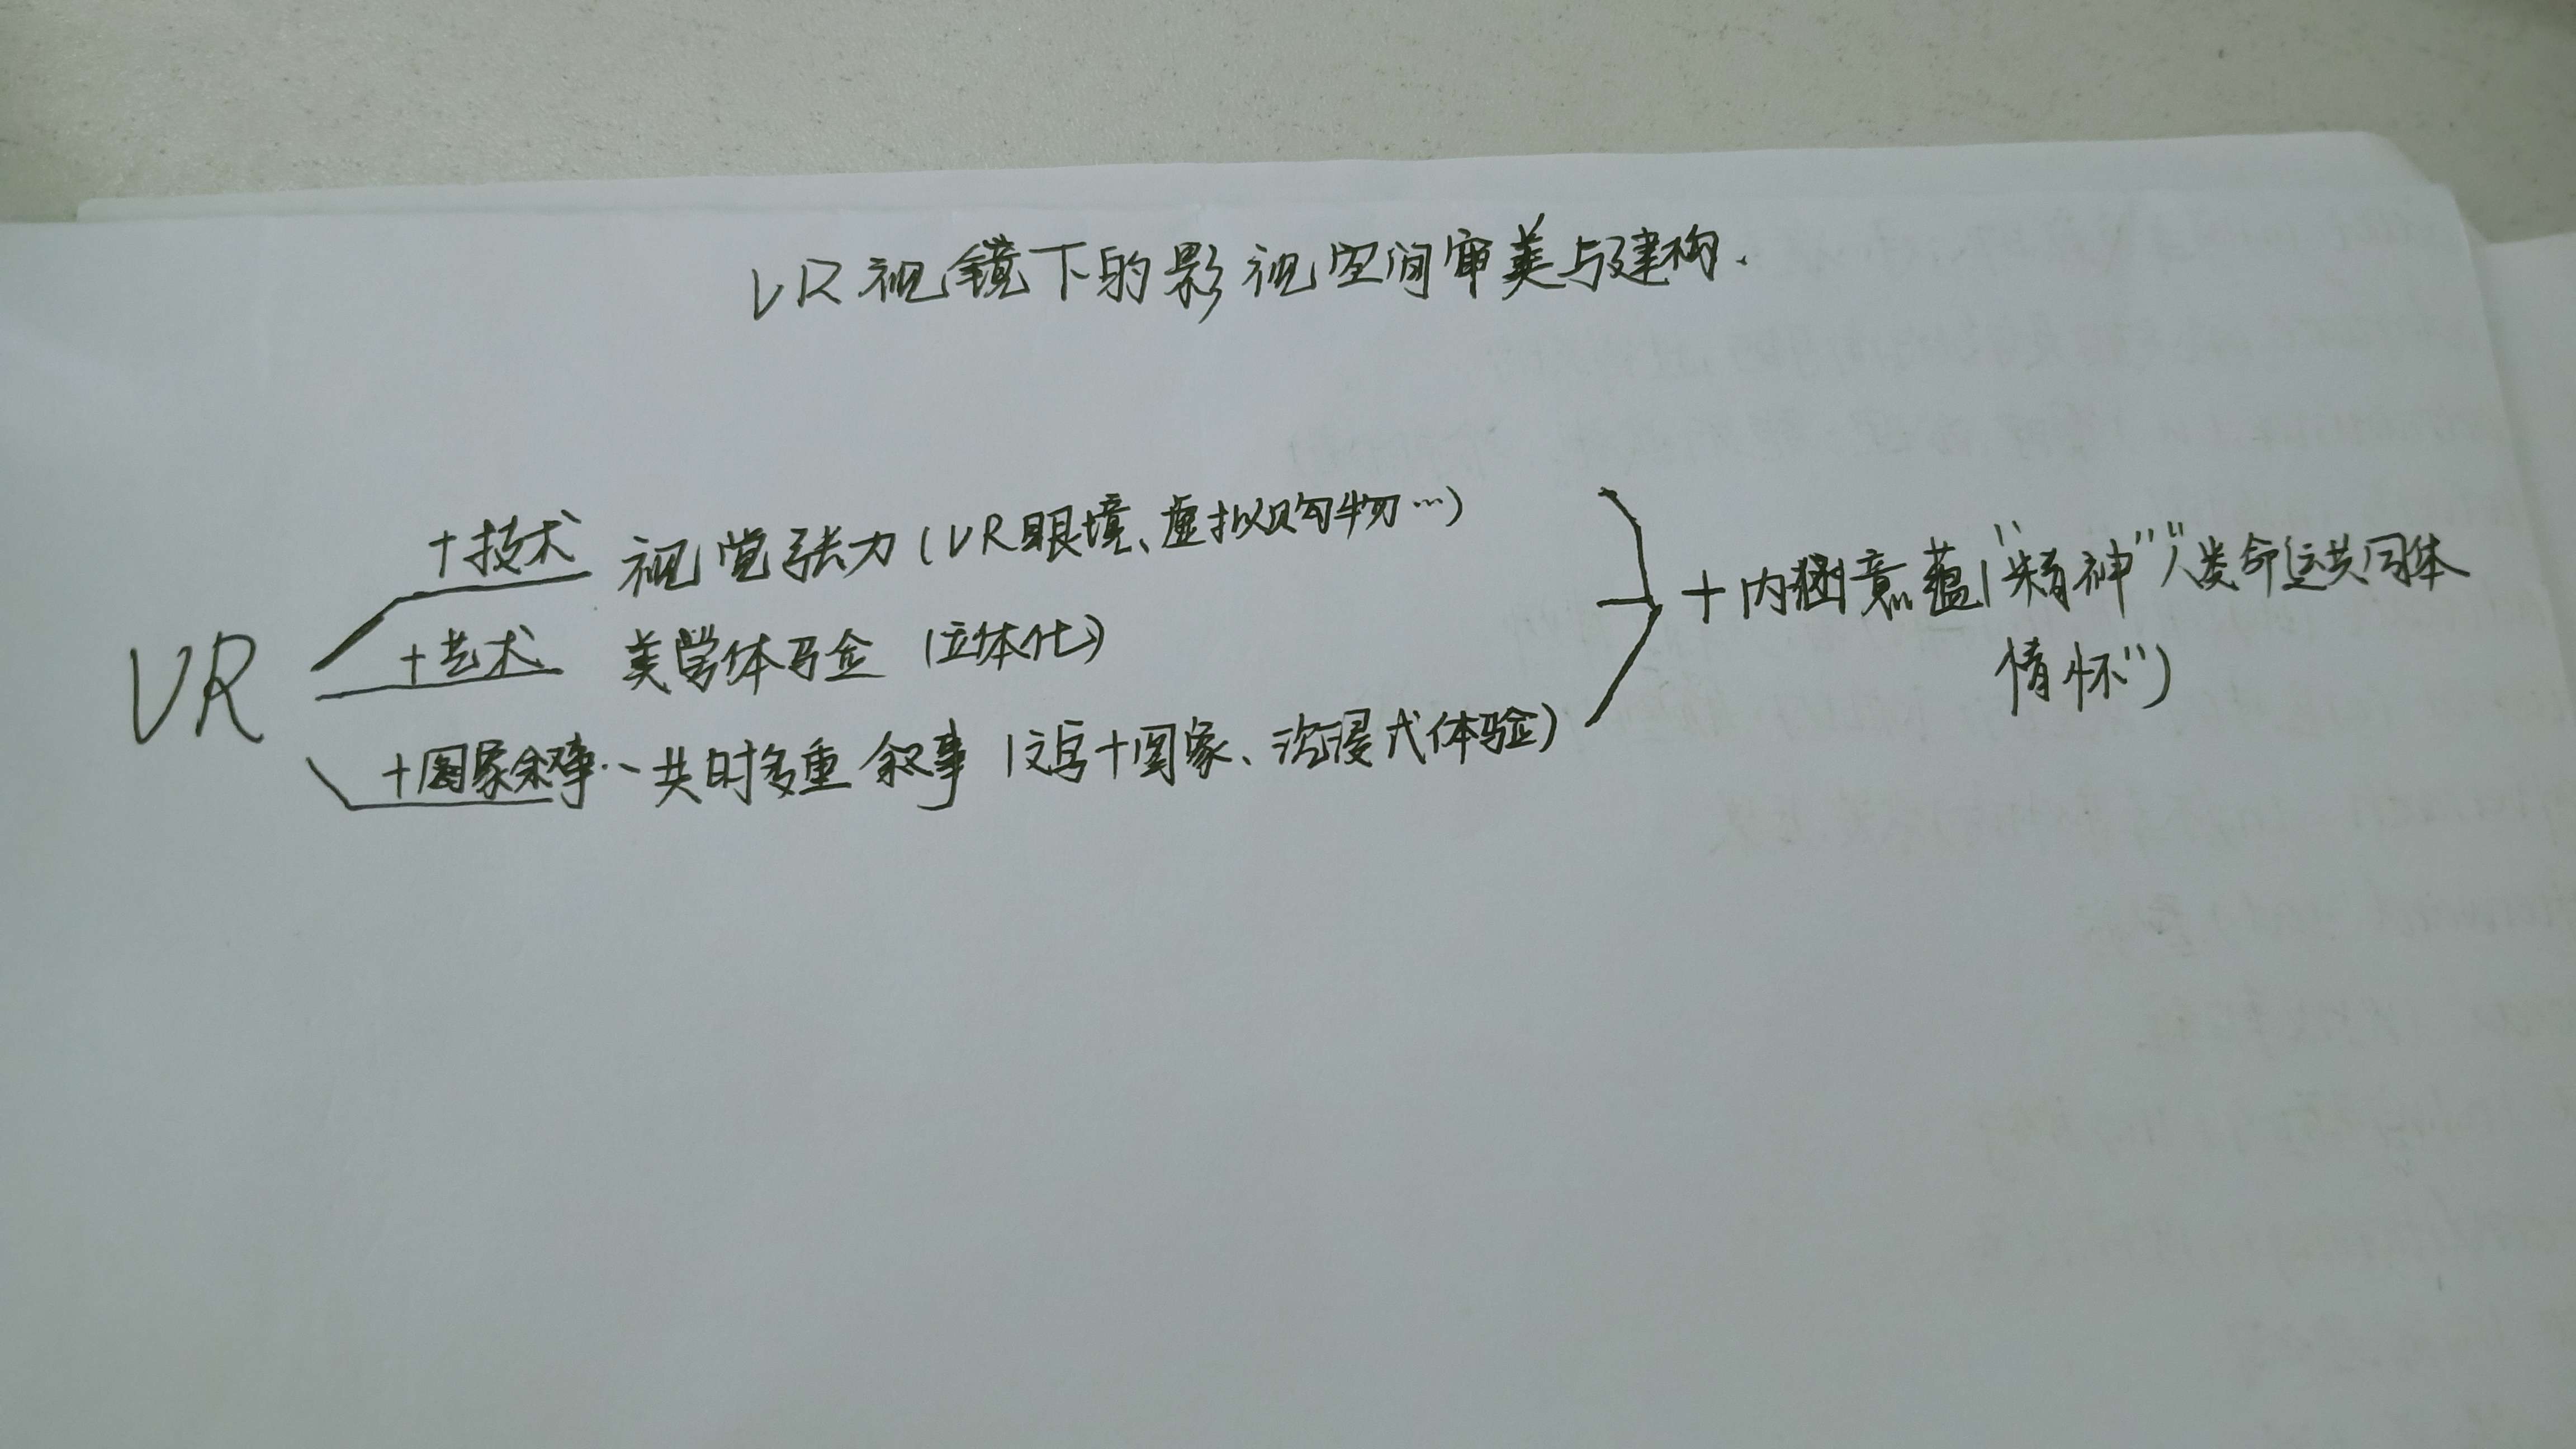 VR视镜下的影视空间审美与建构.
+技术 视觉张力(VR眼境、虚拟购物…)
VR
+艺术 美学体验(立体化)
+图象叙事…共时多重叙事(文字+图象、沉浸式体验)
+内涵意蕴("精神""人类命运共同体
情怀")